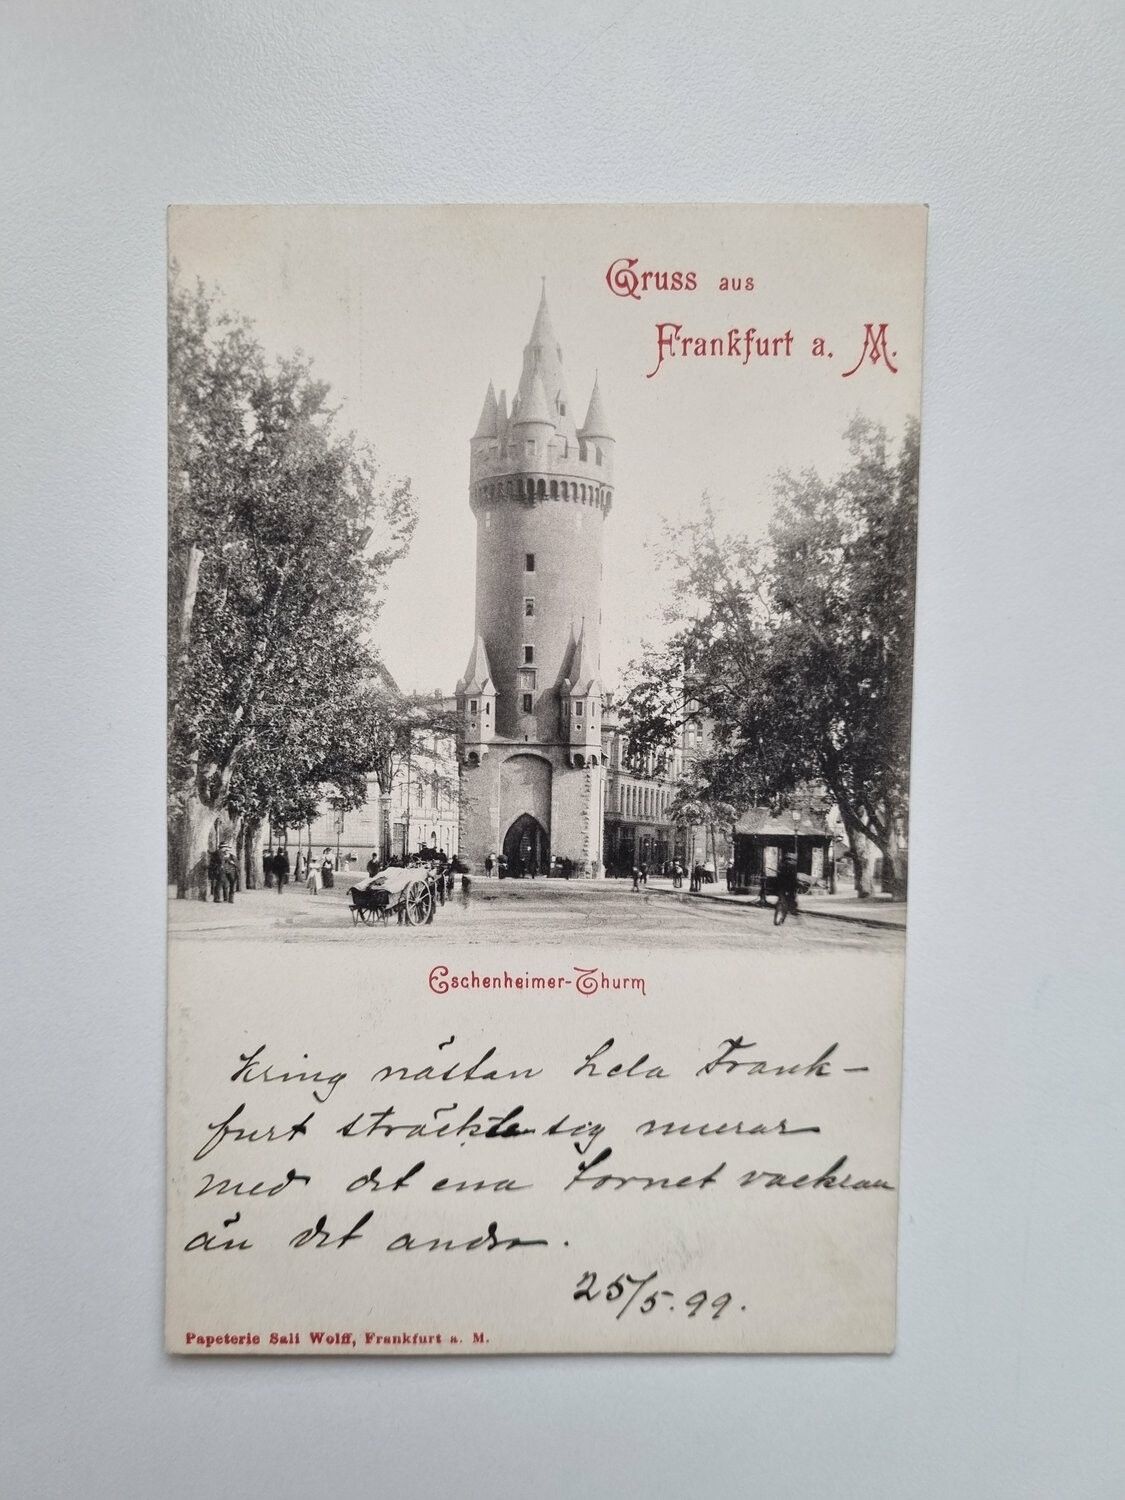 Gruss aus
Frankfurt a. M.
Eschenheimer-Thurm
Kring nästan hela Frank-
furt sträckte sig murar
med det ena tornet vackrau
än det andra.
25/5.99.
Papeterie Sali Wolff, Frankfurt a. M.